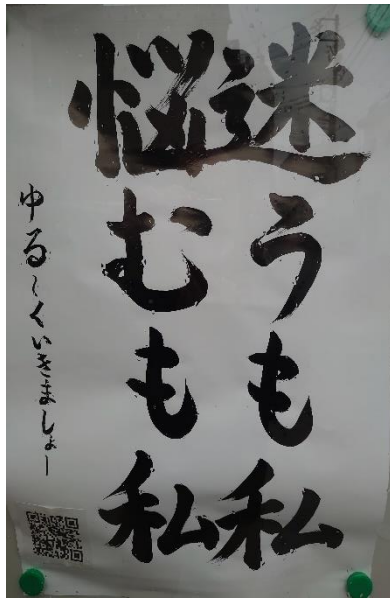 迷うも私
悩むも私
ゆる〜くいきましょー